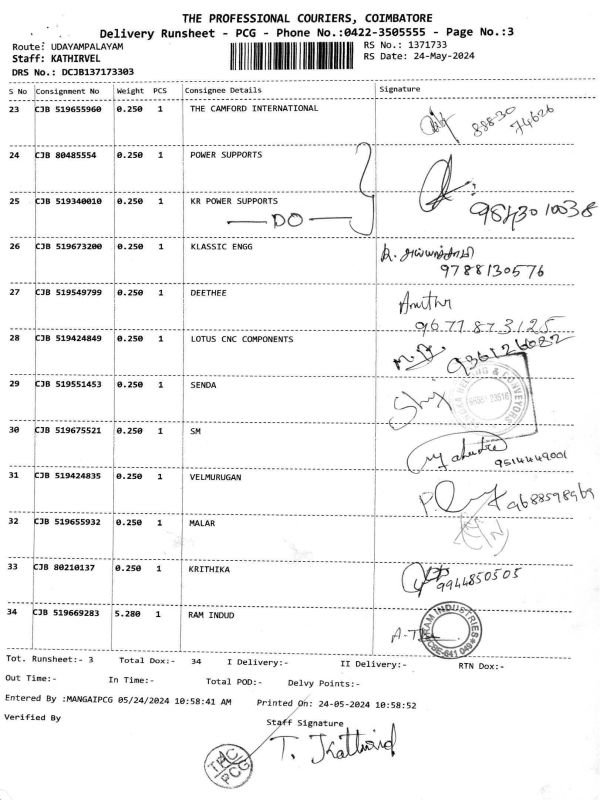 THE PROFESSIONAL COURIERS, COIMBATORE
Delivery Runsheet - PCG - Phone No.:0422-3505555 - Page No.:3
Route: UDAYAMPALAYAM
RS No.: 1371733
Staff: KATHIRVEL
RS Date: 24-May-2024
DRS No.: DCJB137173303
S No Consignment No Weight PCS Consignee Details Signature
23 CJB 519655960 0.250 1 THE CAMFORD INTERNATIONAL
88830
74626
24 CJB 80485554 0.250 1 POWER SUPPORTS
25 CJB 519340010 0.250 1 KR POWER SUPPORTS
DO
26 CJB 519673200 0.250 1 KLASSIC ENGG
9788130576
27 CJB 519549799 0.250 1 DEETHEE
9677873125
28 CJB 519424849 0.250 1 LOTUS CNC COMPONENTS
9361226682
29 CJB 519551453 0.250 1 SENDA
& CONVEYORS
30 CJB 519675521 0.250 1 SM
9514449001
31 CJB 519424835 0.250 1 VELMURUGAN
9688598969
32 CJB 519655932 0.250 1 MALAR
33 CJB 80210137 0.250 1 KRITHIKA
9944850505
34 CJB 519669283 5.280 1 RAM INDUD
RAM INDUSTRIES
CBE-641 049
Tot. Runsheet:- 3 Total Dox:- 34 I Delivery:- II Delivery:- RTN Dox:-
Out Time:- In Time:- Total POD:- Delvy Points:-
Entered By :MANGAIPCG 05/24/2024 10:58:41 AM Printed On: 24-05-2024 10:58:52
Verified By
Staff Signature
T. Kathirvel
PCG